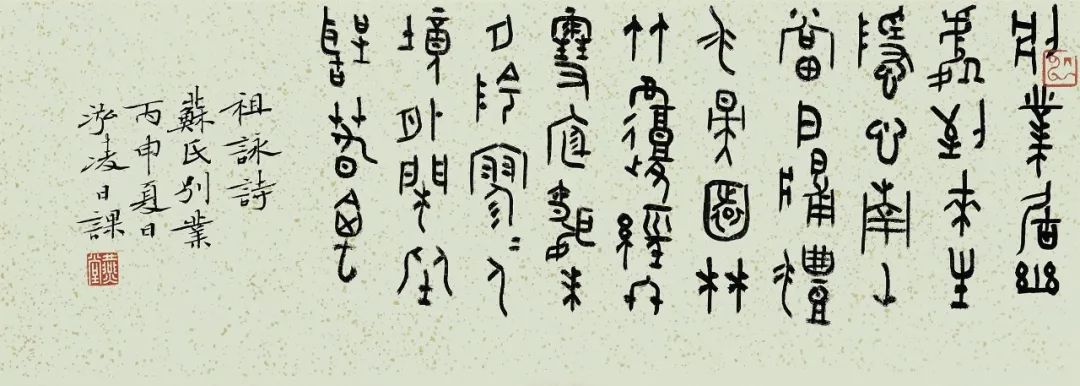 別業居幽
處到來生
隱心南山
當戶牖灃
水映園林
竹覆經冬
雪庭昏未
夕陰寥〻人
境外閑坐
聽春禽
祖詠詩
蘇氏別業
丙申夏日
泓凌日課